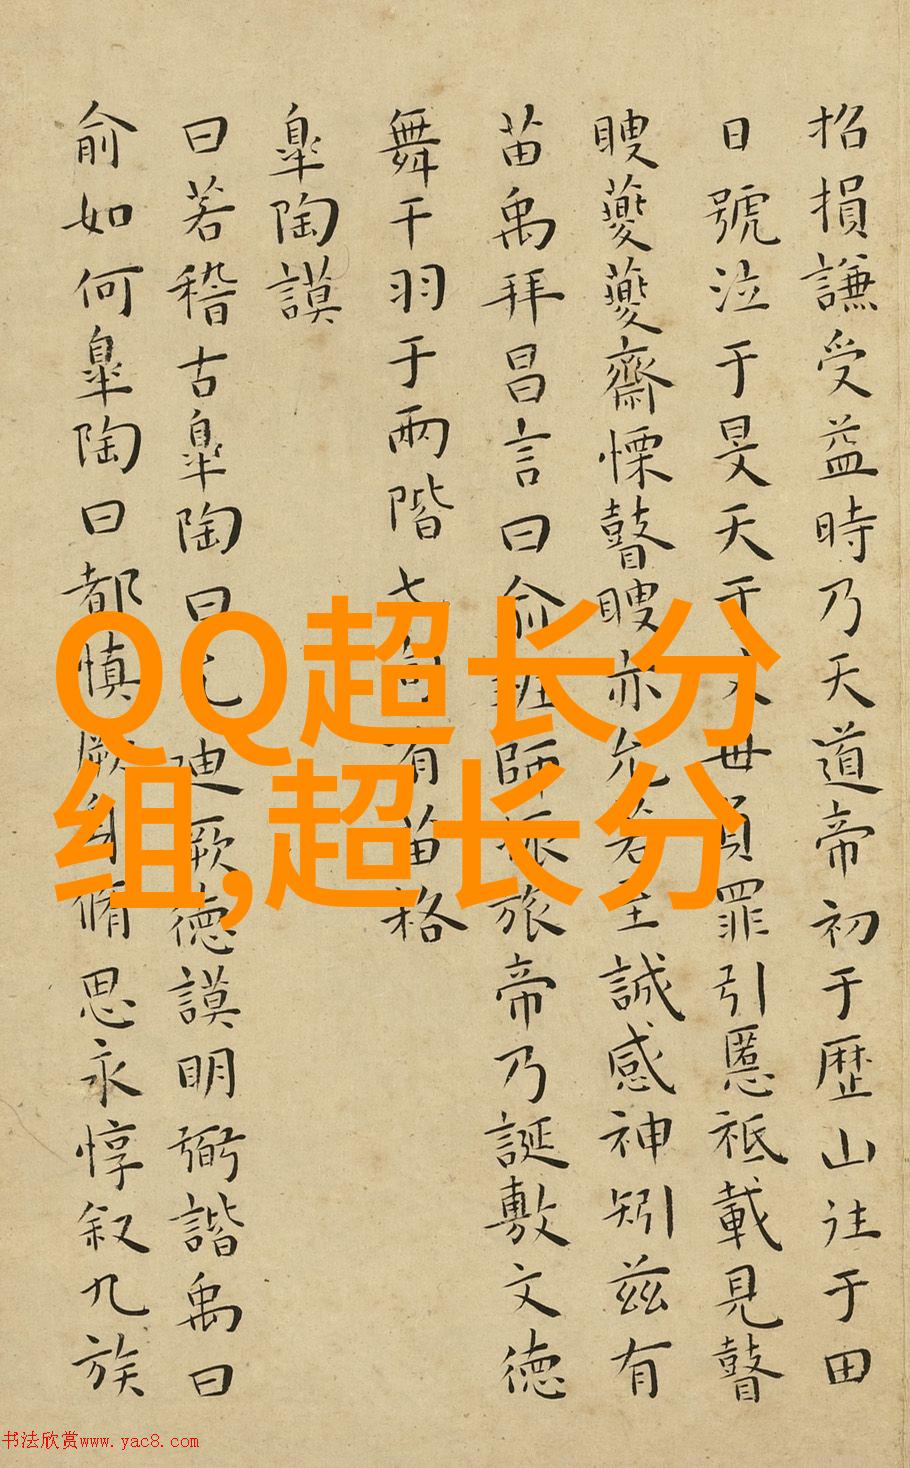 招損謙受益時乃天道帝初于歴山往于田
日號泣于旻天于父母負罪引慝祗載見瞽
瞍夔夔齋慄瞽瞍亦允若至誠感神矧茲有
苗禹拜昌言曰俞班師振旅帝乃誕敷文德
舞干羽于兩階七旬有苗格
皋陶謨
曰若稽古皋陶曰允迪厥德謨明弼諧禹曰
俞如何皋陶曰都慎厥身脩思永惇叙九族
QQ超长分
组,超长分
书法欣赏www.yac8.com